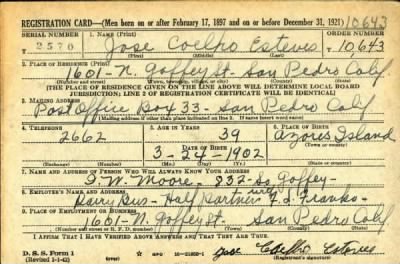 REGISTRATION CARD—(Men born on or after February 17, 1897 and on or before December 31, 1921) 10643
SERIAL NUMBER 1. NAME (Print) ORDER NUMBER
2570 Jose Coelho Esteves 10,643
(First) (Middle) (Last)
2. PLACE OF RESIDENCE (Print)
1601-N. Goffey St San Pedro Calif
(Number and street) (Town, township, village, or city) (County) (State)
[THE PLACE OF RESIDENCE GIVEN ON THE LINE ABOVE WILL DETERMINE LOCAL BOARD
JURISDICTION; LINE 2 OF REGISTRATION CERTIFICATE WILL BE IDENTICAL]
3. MAILING ADDRESS
Post Office Box 33 - San Pedro Calif
[Mailing address if other than place indicated on line 2. If same insert word same]
4. TELEPHONE 5. AGE IN YEARS 6. PLACE OF BIRTH
2662 39 Azores Island
DATE OF BIRTH (Town or county)
3-24-1902
(Mo.) (Day) (Yr.) (State or country)
7. NAME AND ADDRESS OF PERSON WHO WILL ALWAYS KNOW YOUR ADDRESS
Moore - 832-So Goffey-
8. EMPLOYER'S NAME AND ADDRESS
Half Partner with Franks-
9. PLACE OF EMPLOYMENT OR BUSINESS
1601-N Goffey St. San Pedro Calif
(Number and street or R. F. D. number) (Town) (County) (State)
I AFFIRM THAT I HAVE VERIFIED ABOVE ANSWERS AND THAT THEY ARE TRUE.
D. S. S. Form 1
(Revised 1-1-42) Jose Coelho Esteves